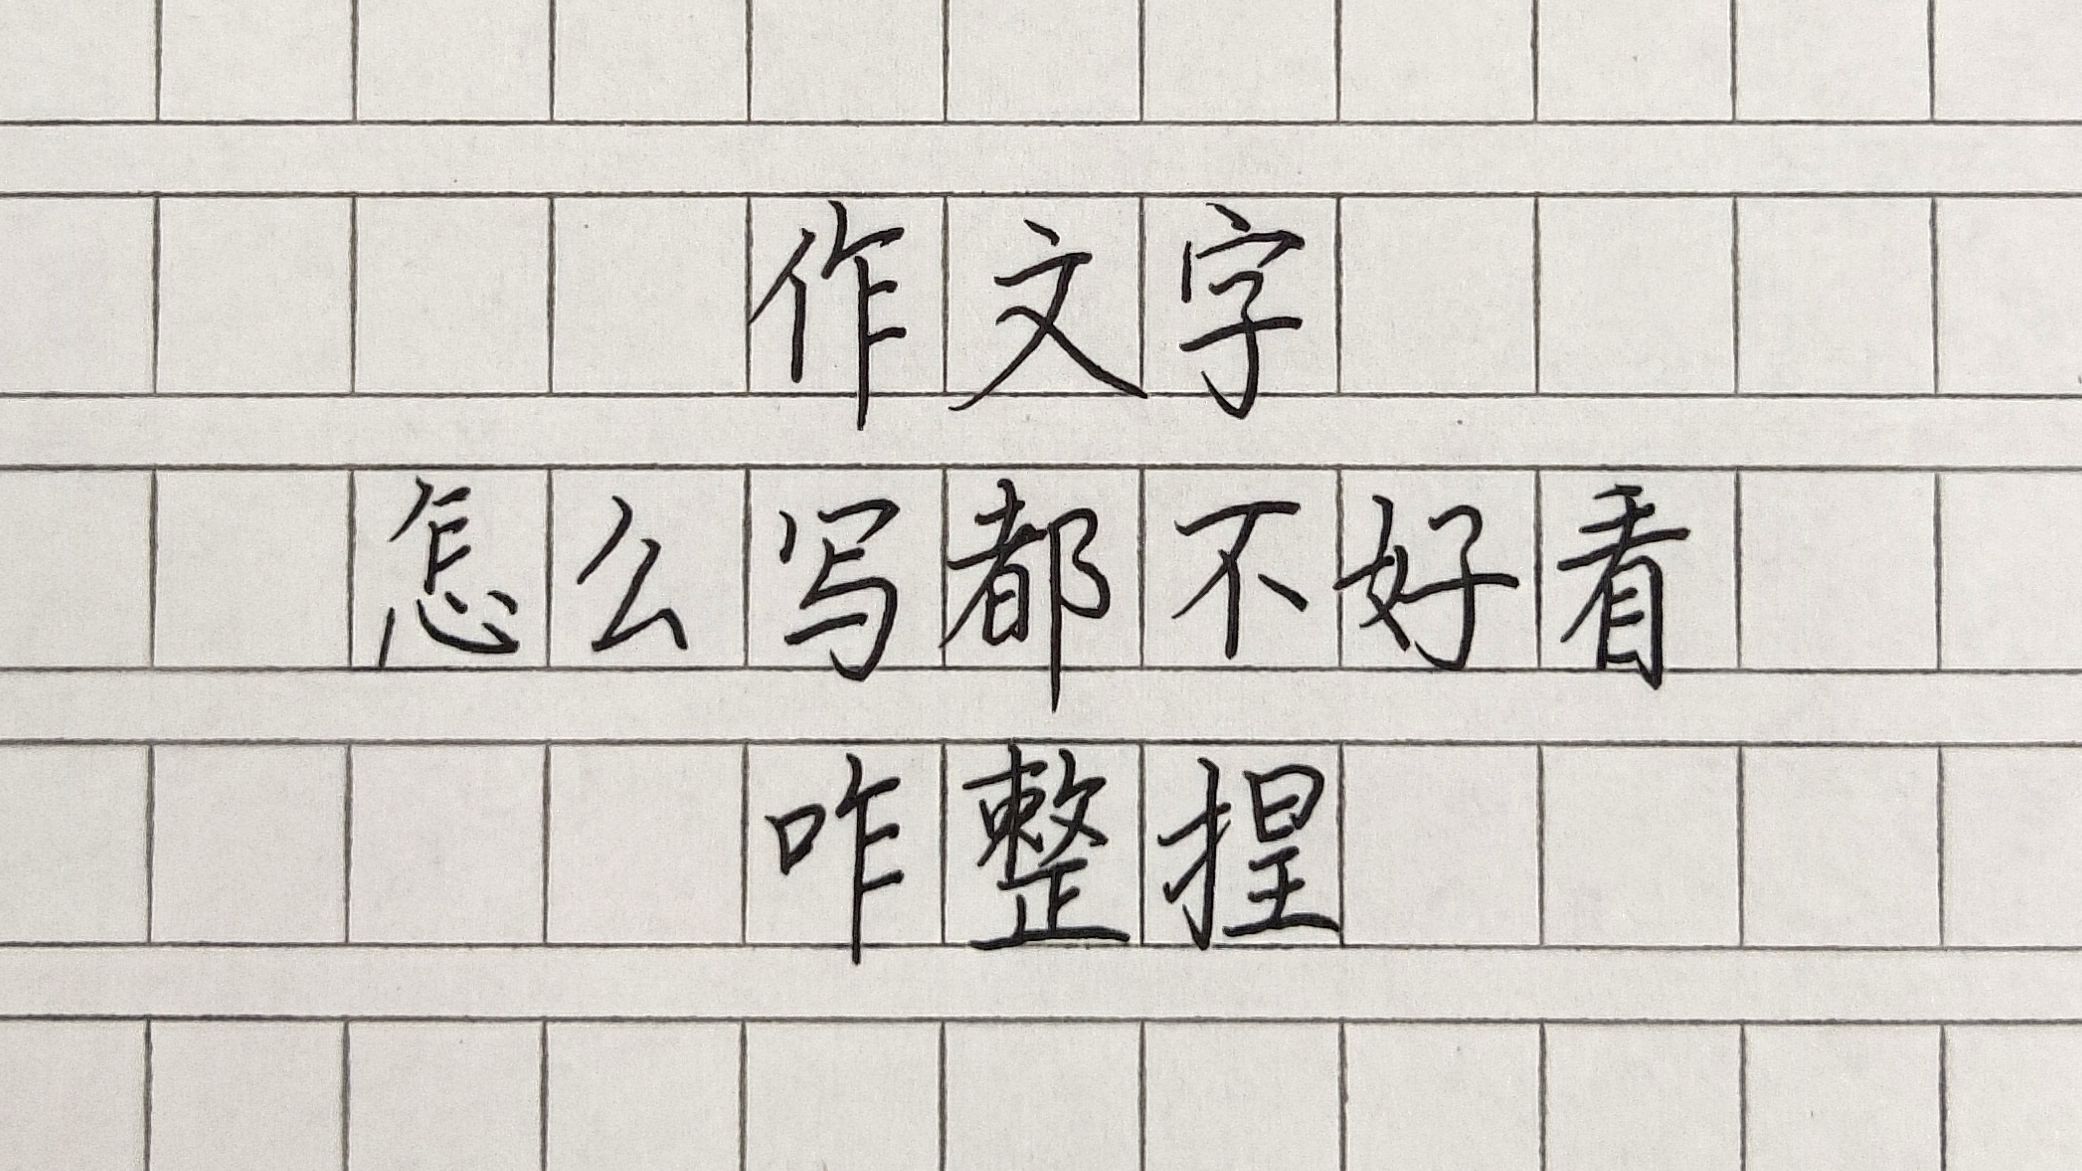 作文字
怎么写都不好看
咋整捏